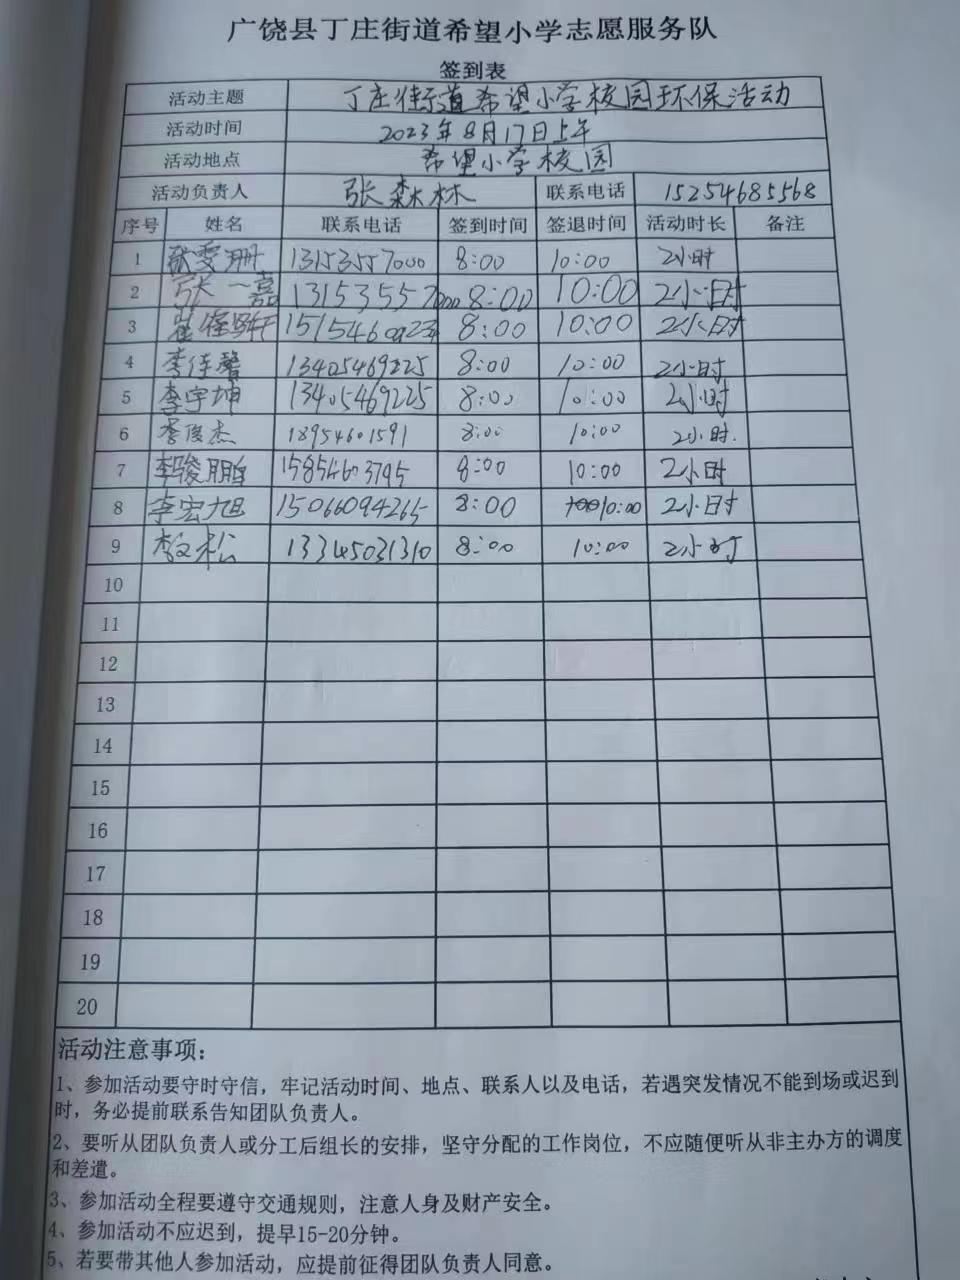 广饶县丁庄街道希望小学志愿服务队
签到表
活动主题 丁庄街道希望小学校园环保活动
活动时间 2023年8月17日上午
活动地点 希望小学校园
活动负责人 张森林 联系电话 15254685568
序号 姓名 联系电话 签到时间 签退时间 活动时长 备注
1 张雯珊 13153557000 8:00 10:00 2小时
2 张一嘉 13153557000 8:00 10:00 2小时
3 8:00 10:00 2小时
4 李佳馨 13405469225 8:00 10:00 2小时
5 李宇坤 13405469225 8:00 10:00 2小时
6 李俊杰 18954601591 8:00 10:00 2小时.
7 李骏鹏 15854603795 8:00 10:00 2小时
8 李宏旭 15066094265 8:00 10:00 2小时
9 李文松 13345031310 8:00 10:00 2小时
10
11
12
13
14
15
16
17
18
19
20
活动注意事项：
1、参加活动要守时守信，牢记活动时间、地点、联系人以及电话，若遇突发情况不能到场或迟到
时，务必提前联系告知团队负责人。
2、要听从团队负责人或分工后组长的安排，坚守分配的工作岗位，不应随便听从非主办方的调度
和差遣。
3、参加活动全程要遵守交通规则，注意人身及财产安全。
4、参加活动不应迟到，提早15-20分钟。
5、若要带其他人参加活动，应提前征得团队负责人同意。